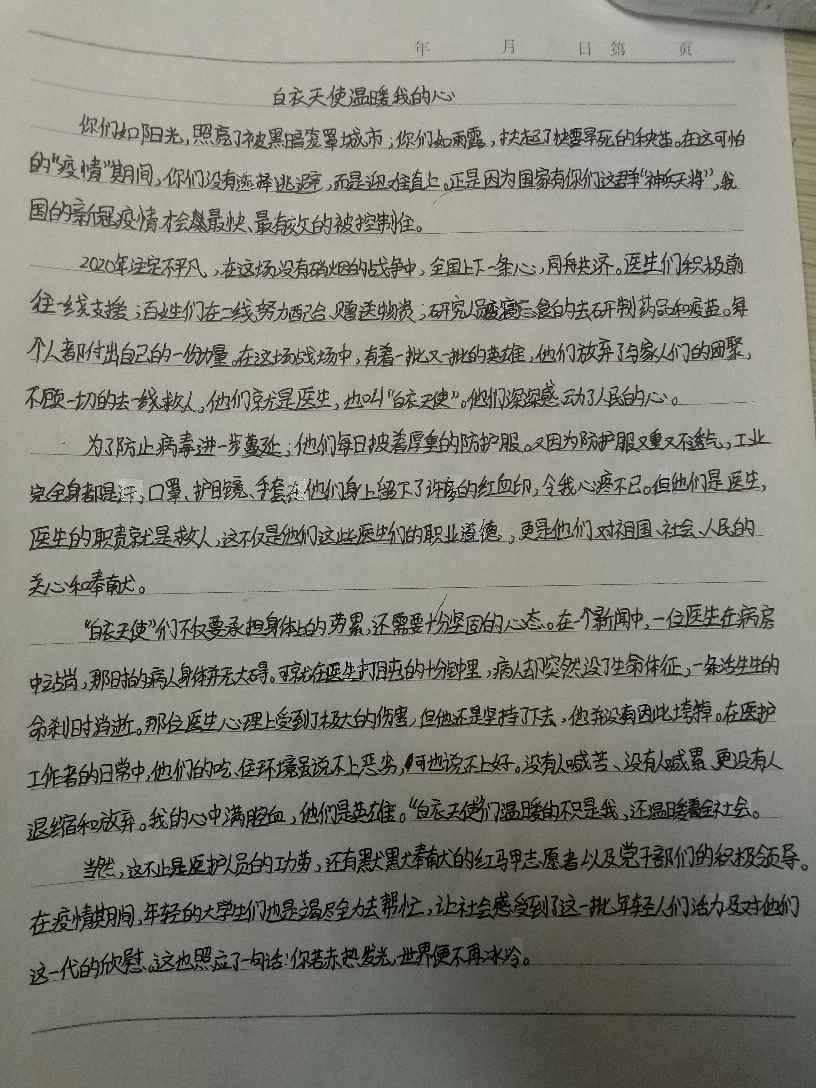 年 月 日 第 页
白衣天使温暖我的心
你们如阳光,照亮了被黑暗笼罩城市;你们如雨露,扶起了快要旱死的秧苗。在这可怕
的“疫情”期间,你们没有选择逃避,而是迎难直上。正是因为国家有你们这群“神兵天将”,我
国的新冠疫情才会最快、最有效的被控制住。
2020年注定不平凡,在这场没有硝烟的战争中,全国上下一条心,同舟共济。医生们积极前
往一线支援;百姓们在二线努力配合、赠送物资;研究人员废寝忘食的去研制药品和疫苗。每
个人都付出自己的一份力量。在这场战场中,有着一批又一批的英雄,他们放弃了与家人们的团聚,
不顾一切的去一线救人,他们就是医生,也叫“白衣天使”。他们深深感动了人民的心。
为了防止病毒进一步蔓延;他们每日披着厚重的防护服。又因为防护服又重又不透气,工业
完全身都是汗,口罩、护目镜、手套在他们身上留下了许多的红血印,令我心疼不已。但他们是医生,
医生的职责就是救人,这不仅是他们这些医生们的职业道德,更是他们对祖国、社会、人民的
关心和奉献。
“白衣天使”们不仅要承担身体上的劳累,还需要十分坚固的心态。在一个新闻中,一位医生在病房
中站岗,那时的病人身体并无大碍。可就在医生打盹的十分钟里,病人却突然没了生命体征,一条活生生的
命刹时消逝。那位医生心理上受到了极大的伤害,但他还是坚持了下去,他并没有因此垮掉。在医护
工作者的日常中,他们的吃、住环境虽说不上恶劣,可也说不上好。没有人喊苦、没有人喊累、更没有人
退缩和放弃。我的心中满腔血,他们是英雄。“白衣天使”们温暖的不只是我,还温暖着全社会。
当然,这不止是医护人员的功劳,还有默默奉献的红马甲志愿者以及党干部们的积极领导。
在疫情期间,年轻的大学生们也是竭尽全力去帮忙,让社会感受到了这一批年轻人们活力及对他们
这一代的欣慰。这也照应了一句话:你若赤热发光,世界便不再冰冷。